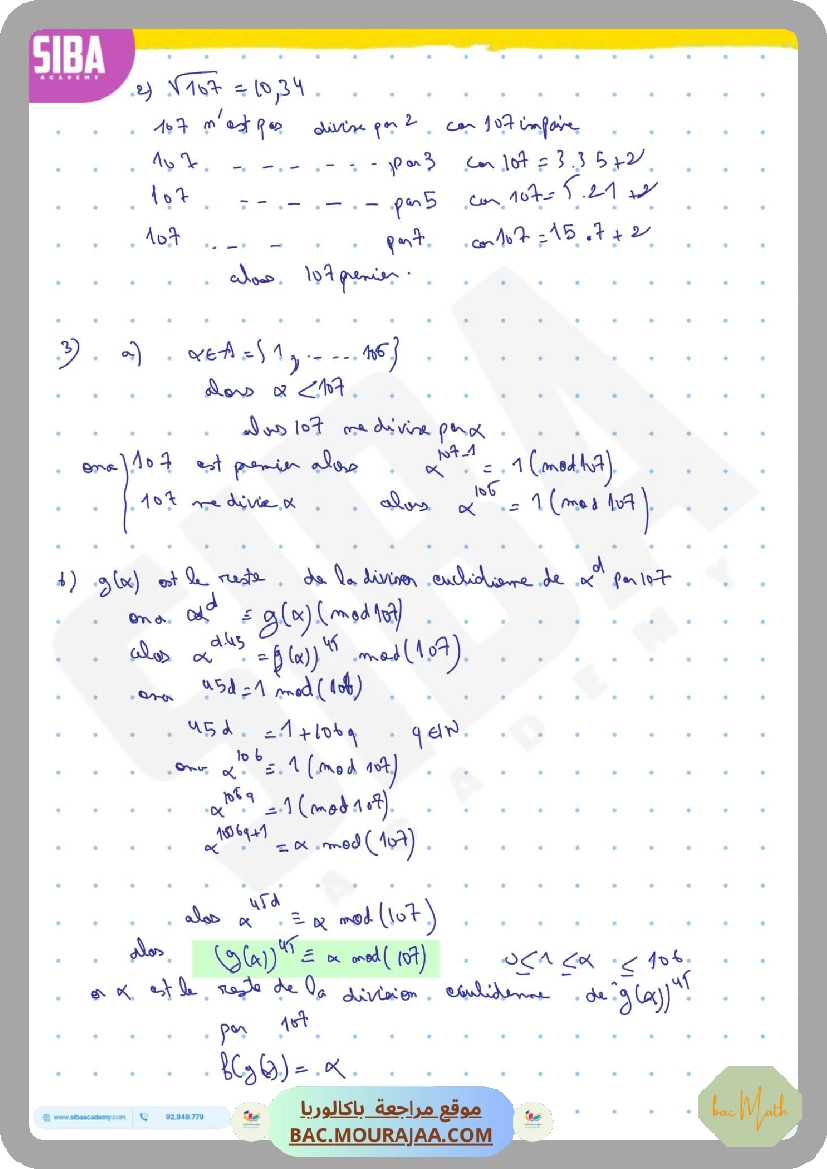 SIBA
ACADEMY
e) √107 = 10,34
107 n'est pas divise par 2 car 107 impaire
107 - - - - - - - par 3 car 107 = 3.35+2
107 - - - - - par 5 car 107 = 5.21+2
107 - - - par 7 car 107 = 15.7+2
alors 107 premier.
3) a) α∈A = {1, ..... 106}
alors α < 107
alors 107 ne divise par α
ona 107 est premier alors α^107-1 ≡ 1 (mod 107)
107 ne divie α alors α^106 ≡ 1 (mod 107)
b) g(α) est le reste de la division euclidienne de α^d par 107
ona α^d ≡ g(α) (mod 107)
alors α^d.45 ≡ (g(α))^45 mod (107)
ona 45d = 1 mod (106)
45d = 1+106q q∈IN
ona α^106 ≡ 1 (mod 107)
α^106q ≡ 1 (mod 107)
α^106q+1 ≡ α mod (107)
alos α^45d ≡ α mod (107)
alos (g(α))^45 ≡ α mod (107) 0 ≤ 1 ≤ α ≤ 106
or α est le reste de la division de (g(α))^45
par 107
f(g(α)) = α
www.sibaacademy.com 92.949.779
موقع مراجعة باكالوريا
BAC.MOURAJAA.COM
bac Math